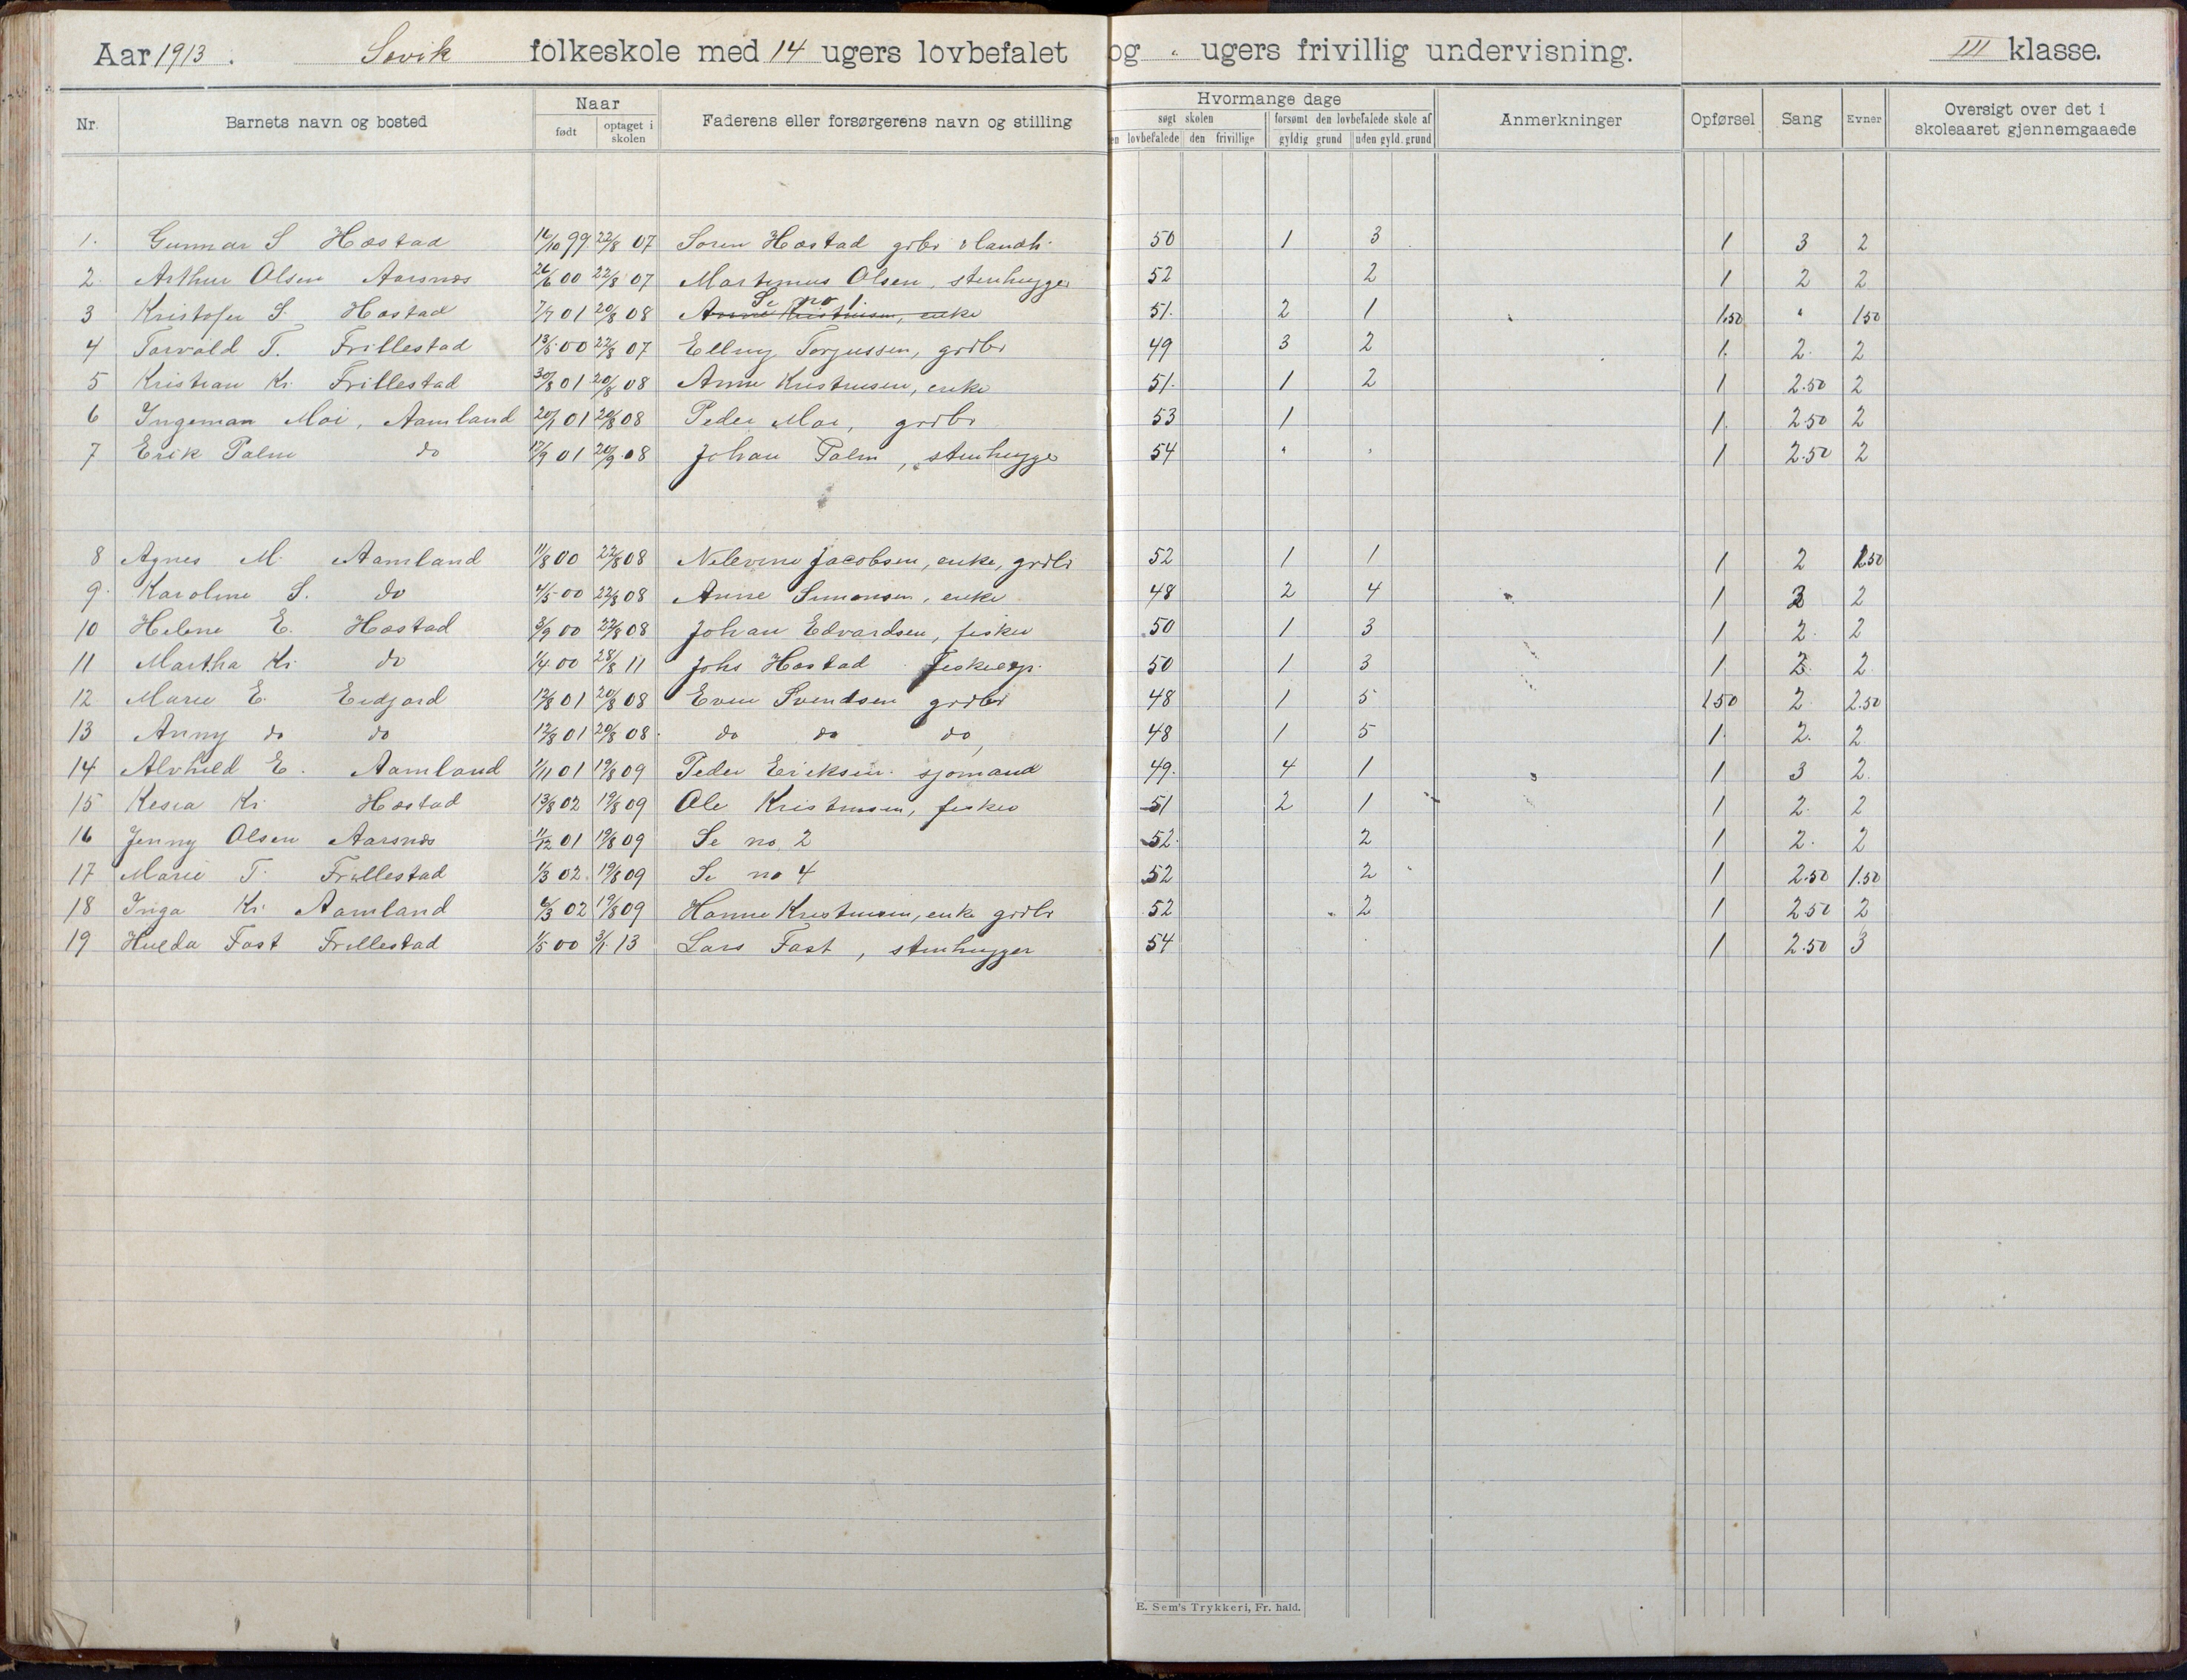 Aar 1913. Sevik folkeskole med 14 ugers lovbefalet og " ugers frivillig undervisning. III klasse.
Nr. Barnets navn og bosted Naar født optaget i skolen Faderens eller forsørgerens navn og stilling Hvormange dage søgt skolen den lovbefalede den frivillige forsømt den lovbefalede skole af gyldig grund uden gyld. grund Anmerkninger Opførsel Sang Evner Oversigt over det i skoleaaret gjennemgaaede
1. Gunnar S Hæstad 16/10 99 22/8 07 Søren Hæstad grbr & landh. 50 1 3 1 3 2
2. Arthur Olsen Aarsnæs 26/6 00 22/8 07 Martinius Olsen, stenhugger 52 2 1 2 2
3 Kristofer S. Hæstad 7/7 01 20/8 08 Se no 1. 51. 2 1 1.50 " 1.50
4 Torvald T. Frillestad 13/5 00 22/8 07 Elling Torjussen, grdbr 49 3 2 1 2. 2
5 Kristian Kr. Frillestad 30/8 01 20/8 08 Anne Kristensen, enke 51. 1 2 1 2.50 2
6 Ingeman Moi, Aamland 20/1 01 20/8 08 Peder Moi, grdbr 53 1 1 2.50 2
7 Erik Palm do 17/9 01 20/9 08 Johan Palm, stenhugger 54 " " 1 2.50 2
8 Agnes M. Aamland 11/8 00 22/8 08 Nilevine Jacobsen, enke, grdbr 52 1 1 1 2 1.50
9. Karoline S. do 4/5 00 22/8 08 Anne Simonsen, enke 48 2 4 1 3 2
10 Helene E. Hæstad 3/9 00 22/8 08 Johan Edvardsen, fisker 50 1 3 1 2. 2
11 Martha Kr. do 1/4 00 28/8 11 Johs Hæstad fiskeexp. 50 1 3 1 2. 2
12 Marie E. Eidjord 12/8 01 20/8 08 Even Svendsen grdbr 48 1 5 1.50 2 2.50
13 Anny do do 12/8 01 20/8 08 do do do 48 1 5 1 2. 2
14 Alvhild E. Aamland 1/11 01 19/8 09 Peder Eriksen. sjømand 49. 4 1 1 3 2
15 Kesia Kr. Hæstad 13/8 02 19/8 09 Ole Kristensen, fisker 51 2 1 1 2. 2
16 Jenny Olsen Aarsnæs 11/12 01 19/8 09 Se no. 2 52. 2 1 2. 2
17 Marie T. Frillestad 1/3 02 19/8 09 Se no 4 52 2 1 2.50 1.50
18 Inga Kr. Aamland 6/3 02 19/8 09 Hanne Kristensen, enke grdbr 52 2 1 2.50 2
19 Hulda Fast Frillestad 1/5 00 3/1 13 Lars Fast, stenhugger 54 1 2.50 3
E. Sem's Trykkeri, Fr. hald.